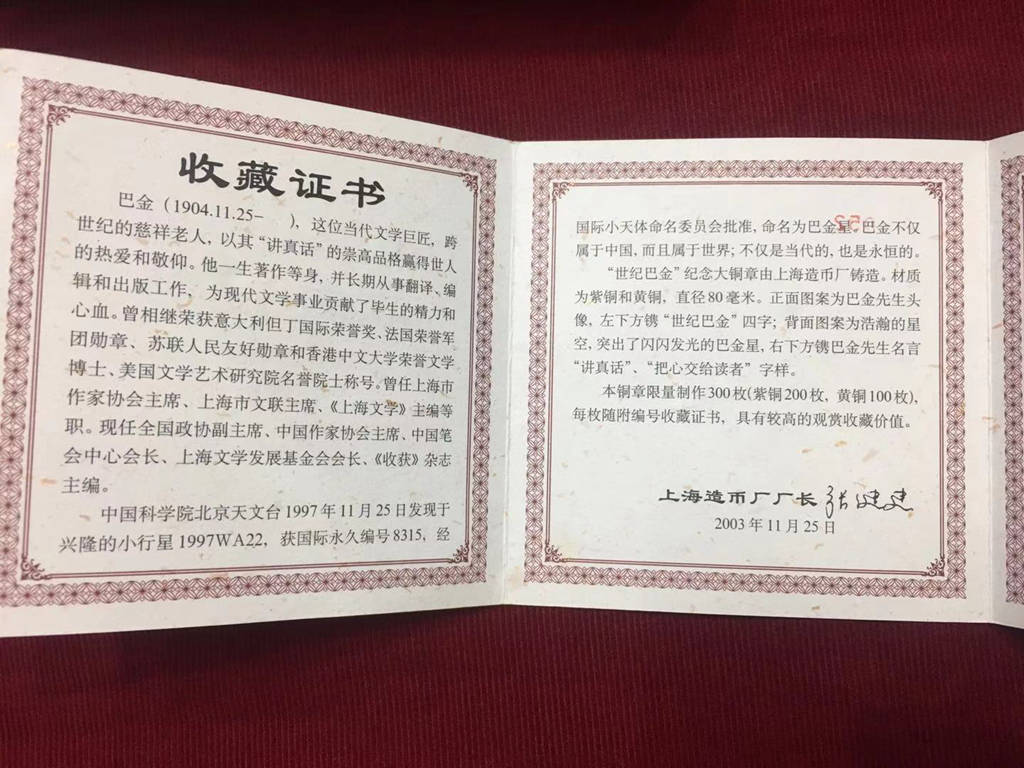 收藏证书
巴金（1904.11.25－　），这位当代文学巨匠，跨
世纪的慈祥老人，以其“讲真话”的崇高品格赢得世人
的热爱和敬仰。他一生著作等身，并长期从事翻译、编
辑和出版工作，为现代文学事业贡献了毕生的精力和
心血。曾相继荣获意大利但丁国际荣誉奖、法国荣誉军
团勋章、苏联人民友好勋章和香港中文大学荣誉文学
博士、美国文学艺术研究院名誉院士称号。曾任上海市
作家协会主席、上海市文联主席、《上海文学》主编等
职。现任全国政协副主席、中国作家协会主席、中国笔
会中心会长、上海文学发展基金会会长、《收获》杂志
主编。
中国科学院北京天文台1997年11月25日发现于
兴隆的小行星1997WA22，获国际永久编号8315，经
国际小天体命名委员会批准，命名为巴金星。巴金不仅
属于中国，而且属于世界；不仅是当代的，也是永恒的。
“世纪巴金”纪念大铜章由上海造币厂铸造。材质
为紫铜和黄铜，直径80毫米。正面图案为巴金先生头
像，左下方镌“世纪巴金”四字；背面图案为浩瀚的星
空，突出了闪闪发光的巴金星，右下方镌巴金先生名言
“讲真话”、“把心交给读者”字样。
本铜章限量制作300枚(紫铜200枚，黄铜100枚)，
每枚随附编号收藏证书，具有较高的观赏收藏价值。
上海造币厂厂长
2003年11月25日